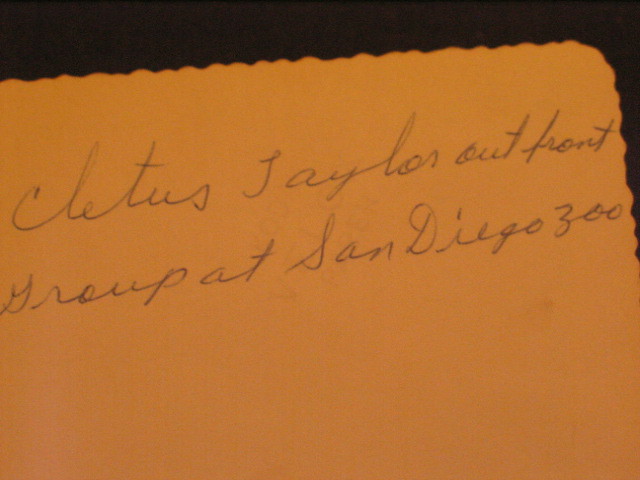 Cletus Taylor out front
Group at San Diego zoo